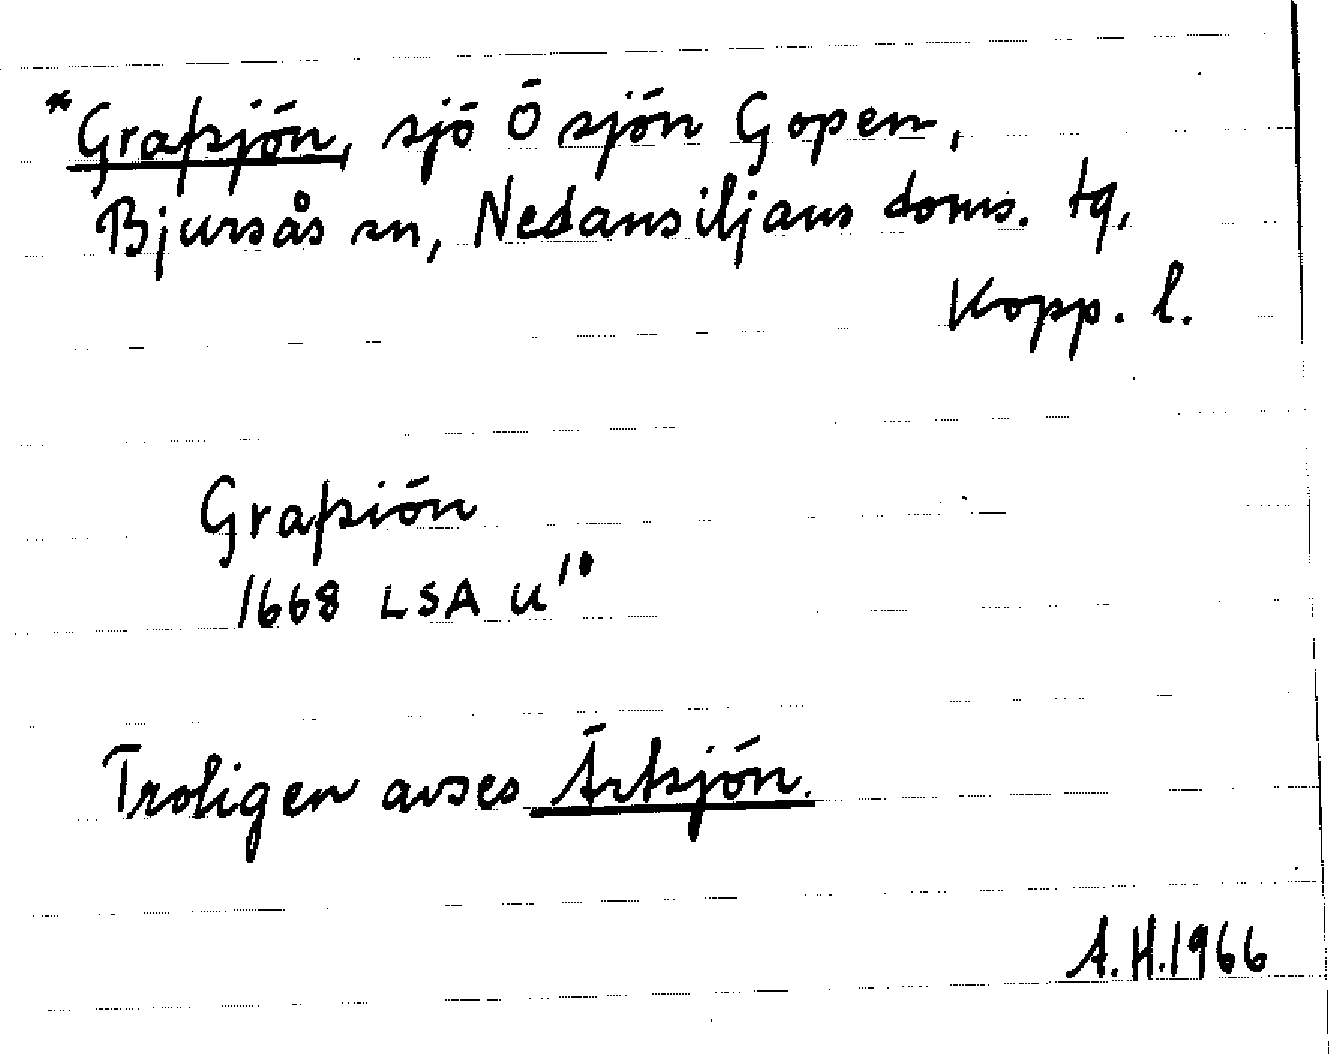 *Grapsjön, sjö Ö sjön Gopen,
Bjursås sn, Nedansiljans doms. tg,
Kopp. l.
Grapsiön
1668 LSA U¹⁰
Troligen avses Ärtsjön.
A.H.1966